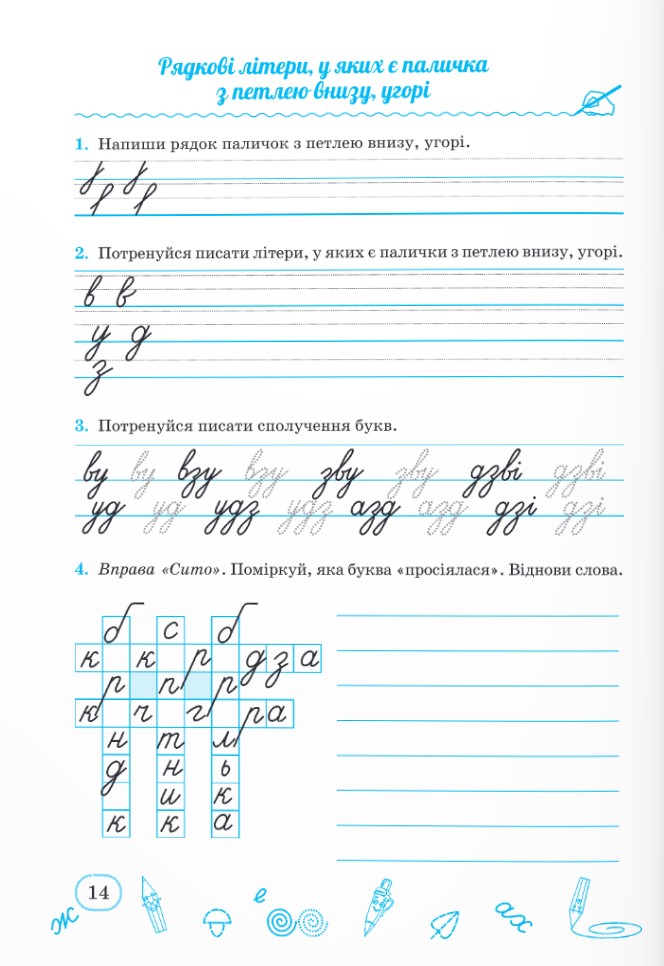 Рядкові літери, у яких є паличка
з петлею внизу, угорі
1. Напиши рядок паличок з петлею внизу, угорі.
2. Потренуйся писати літери, у яких є палички з петлею внизу, угорі.
в в
у д
з
3. Потренуйся писати сполучення букв.
ву ву взу взу зву зву дзві дзві
уд уд удз удз азд азд дзі дзі
4. Вправа «Сито». Поміркуй, яка буква «просіялася». Віднови слова.
б с б
к к р д з а
р п р
к ч г р а
н т л
д н ь
и к
к к а
14
ж е ах